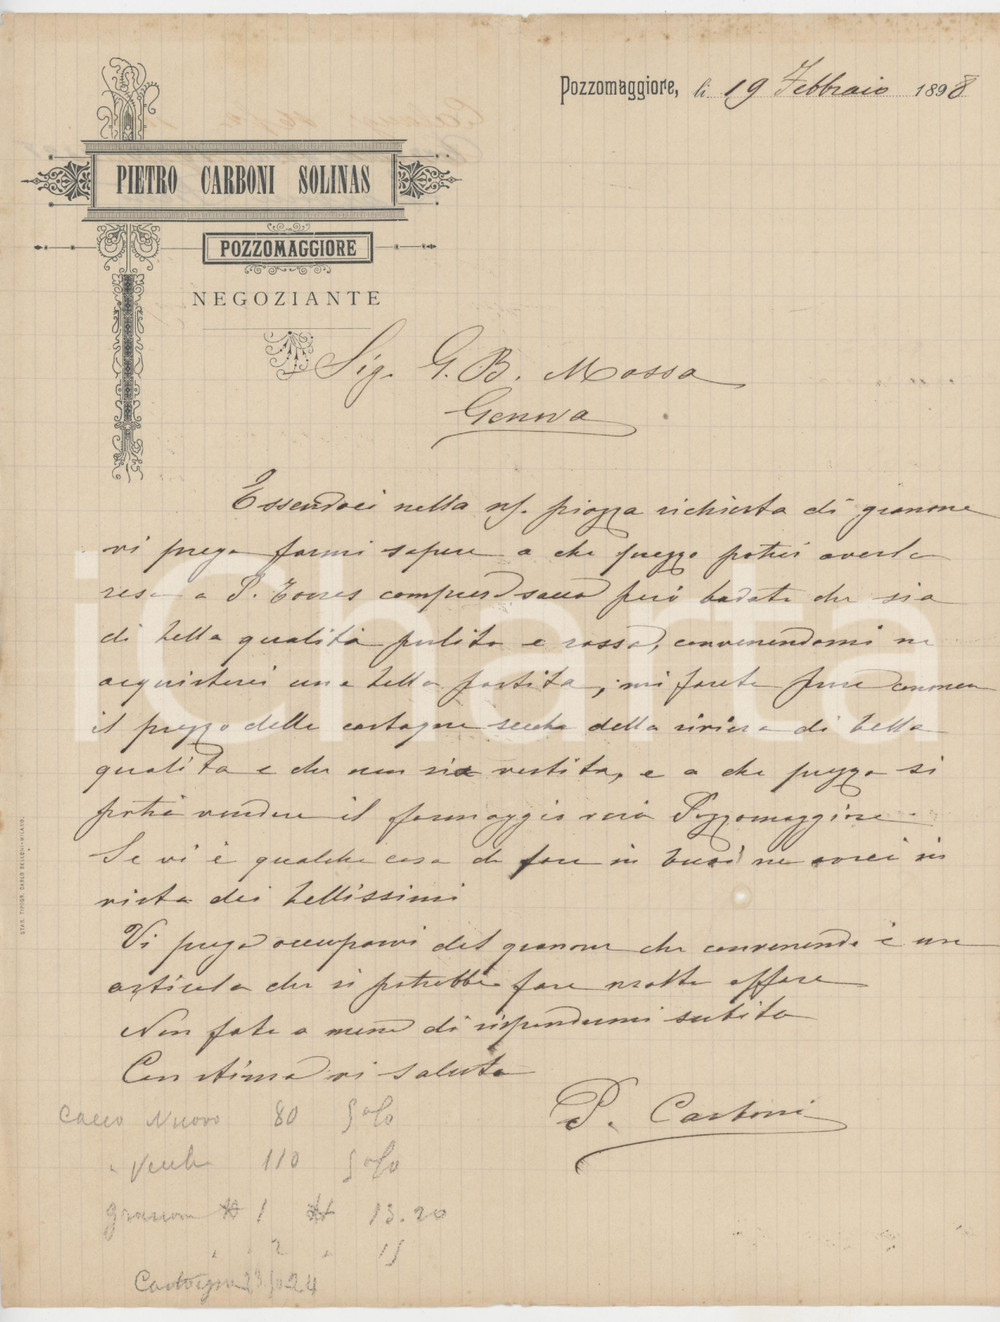 Pozzomaggiore, li 19 Febbraio 1898
PIETRO CARBONI SOLINAS
POZZOMAGGIORE
NEGOZIANTE
Sig. G. B. Mossa
Genova
Essendoci nella ns. piazza richiesta di granone
vi prego farmi sapere a che prezzo potrei averlo
reso a P. Torres compreso sacco però badate che sia
di bella qualità pulito e rosso, convenendomi ne
acquisterei una bella partita, mi farete pure conoscere
il prezzo delle castagne secche della riviera di bella
qualità e che non sia vestita, e a che prezzo si
potrà vendere il formaggio Pozzomaggiore.
Se vi è qualche cosa da fare in buoi ne avrei in
vista dei bellissimi
Vi prego occuparvi del granone che convenendo è un
articolo che si potrebbe fare molto affare
Non fate a meno di rispondermi subito
Con stima vi saluto
P. Carboni
Cacio Nuovo 80 5%
" Vecchio 110 5%
Granone # 1 # 13.20
" " 2 " 15
Castagne 23 50 24
STAB. TIPOGR. CARLO BELLONI-MILANO.
iCharta